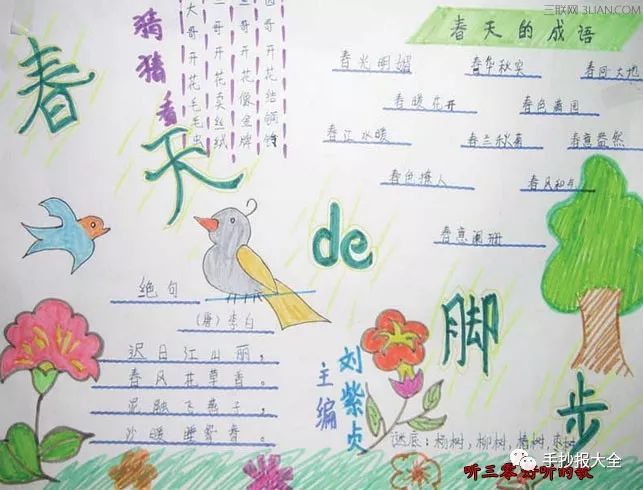 三联网 3LIAN.COM
春天de脚步
猜猜看
大哥开花毛毛虫
哥开花卖丝绒
哥开花像金牌
哥开花结铜铃
春天的成语
春光明媚 春华秋实 春回大地
春暖花开 春色满园
春江水暖 春兰秋菊 春意盎然
春色撩人 春风和
春意阑珊
绝句
（唐）李白
迟日江山丽，
春风花草香。
泥融飞燕子，
沙暖睡鸳鸯。
主编
刘紫贞
谜底：杨树，柳树，椿树，枣树
听三零好听的歌
手抄报大全